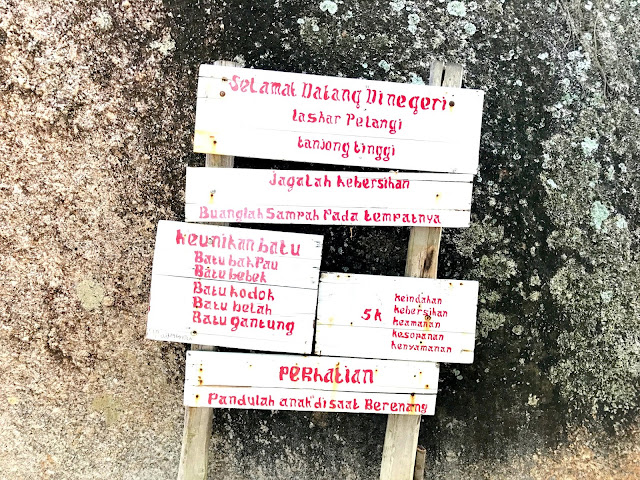 Selamat Datang Dinegeri
laskar Pelangi
tanjong tinggi
Jagalah kebersihan
Buanglah Sampah Pada tempatnya
keunikan batu
Batu bak Pau
Batu bebek
Batu kodok
Batu belah
Batu gantung
5k
keindahan
kebersihan
keamanan
kesopanan
kenyamanan
perhatian
Pandulah anak disaat Berenang